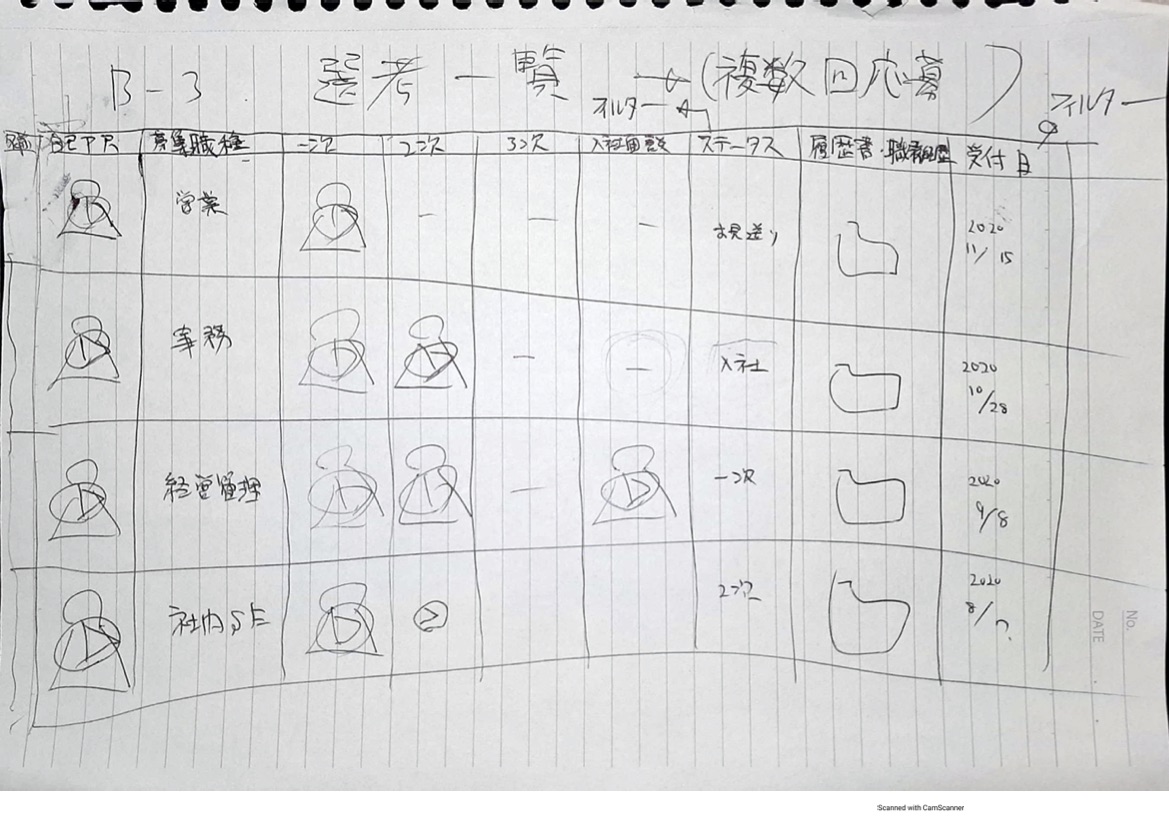 B-3 選考一覧 (複数回応募)
フィルター
フィルター
自己PR 募集職種 一次 2次 3次 入社面談 ステータス 履歴書・職務経歴 受付日
営業 － － － お見送り 2020 11/15
事務 － － 入社 2020 10/28
経営管理 － 一次 2020 9/8
社内SE 2次 2020 8/?
No.
DATE
Scanned with CamScanner